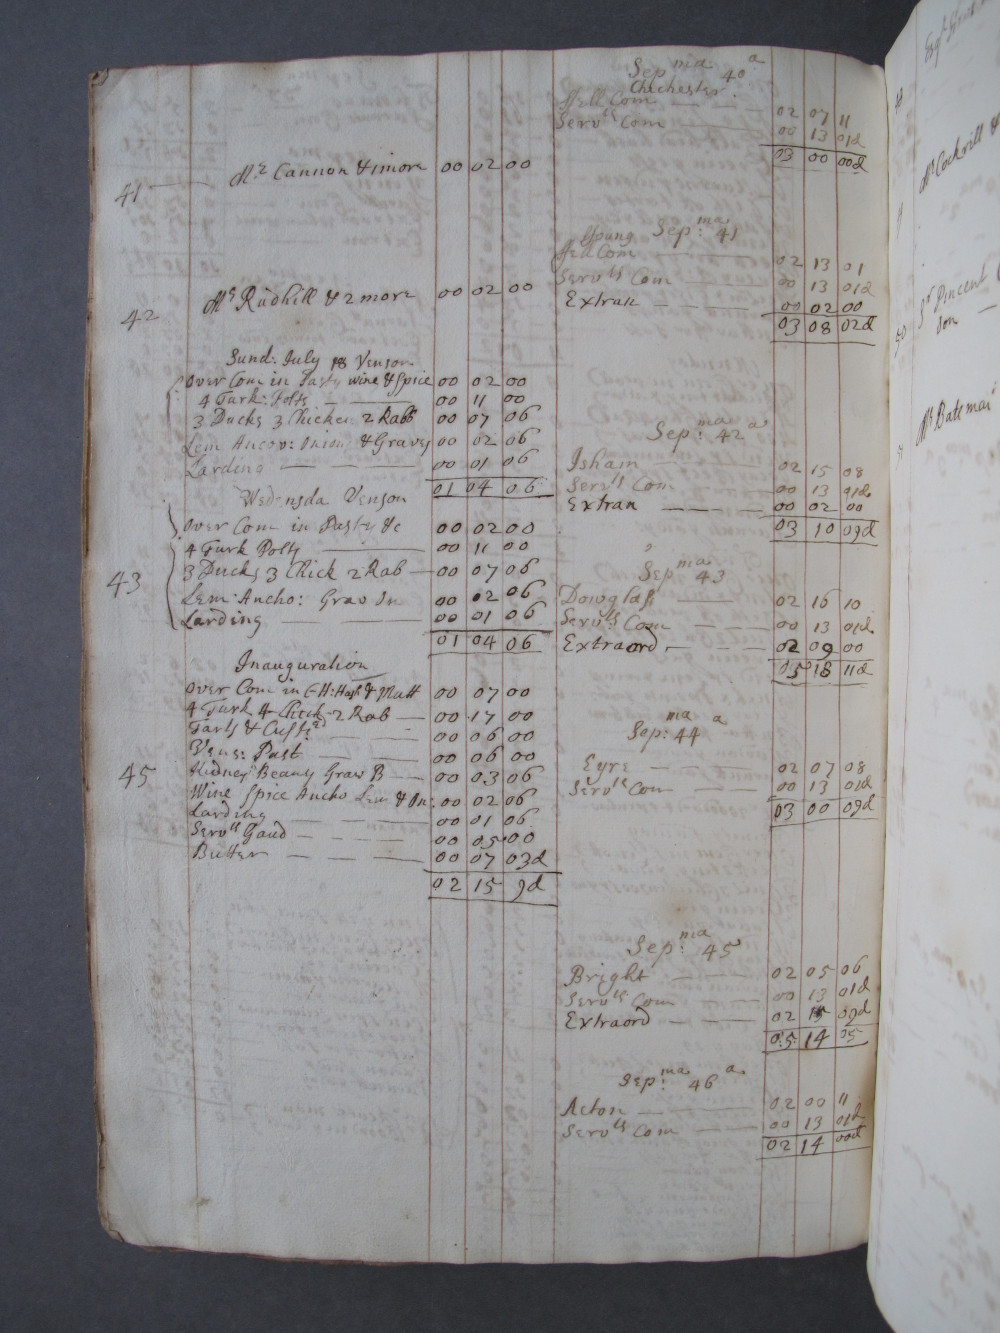 41 Mr Cannon & 1 more 00 02 00
42 Mr Rudhill & 2 more 00 02 00
Sund: July 18 Venson
Over Com in Pasty wine & Spice 00 02 00
4 Turk: Polts 00 11 00
3 Ducks 3 Chicken 2 Rabb 00 07 06
Lem Ancov: Onion & Gravey 00 02 06
Larding 00 01 06
01 04 06
Wedensda Venson
Over Com in Pasty &c 00 02 00
4 Turk Polts 00 11 00
43 3 Ducks 3 Chick 2 Rab 00 07 06
Lem: Ancho: Grav On 00 02 06
Larding 00 01 06
01 04 06
Inauguration
Over Com in & Mutt 00 07 00
4 Turk 4 Chick 2 Rab 00 17 00
Tarts & Custd 00 06 00
Vens: Past 00 06 00
45 Kidney Beans Grav B 00 03 06
Wine Spice Ancho Lem & On: 00 02 06
Larding 00 01 06
Servts Gaud 00 05 00
Butter 00 07 03d
02 15 9d
Sepma 40a
Chichester
Fell Com 02 07 11
Servts Com 00 13 01d
03 00 00d
Young Sep:ma 41
Fell Com 02 13 01
Servts Com 00 13 01d
Extran 00 02 00
03 08 02d
Sep:ma 42a
Isham 02 15 08
Servts Com 00 13 01d
Extran 00 02 00
03 10 09d
Sepma 43
Dowglass 02 16 10
Servts Com 00 13 01d
Extraord 02 09 00
05 18 11d
Sep:ma 44a
Eyre 02 07 08
Servts Com 00 13 01d
03 00 09d
Sep:ma 45
Bright 02 05 06
Servts Com 00 13 01d
Extraord 02 15 09d
05 14 05
Sep:ma 46a
Acton 02 00 11
Servts Com 00 13 01d
02 14 00d
Mr Cockrill &
Sr Vincent
son
50
Mr Bateman